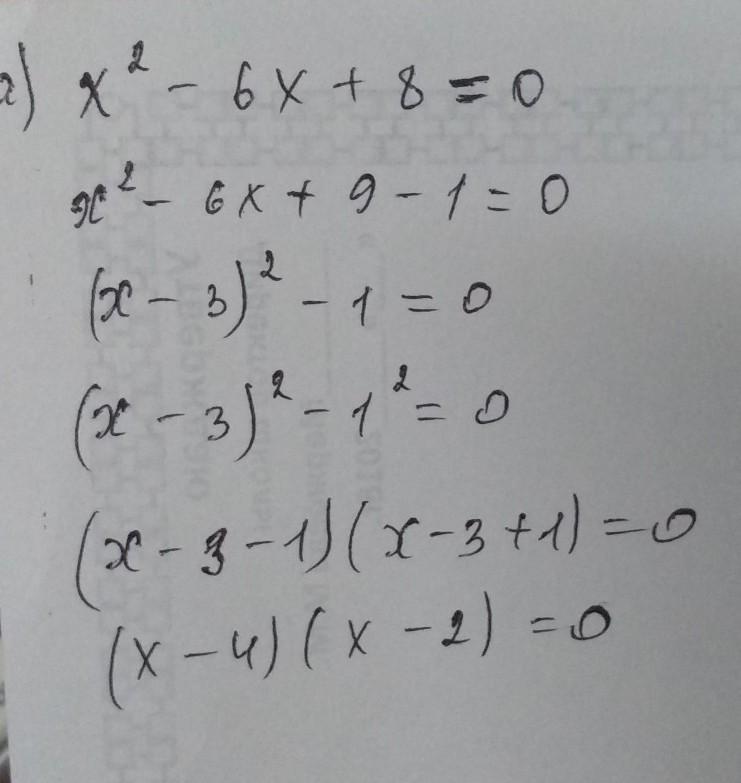 а) x² - 6x + 8 = 0
x² - 6x + 9 - 1 = 0
(x - 3)² - 1 = 0
(x - 3)² - 1² = 0
(x - 3 - 1)(x - 3 + 1) = 0
(x - 4)(x - 2) = 0
Утверждаю